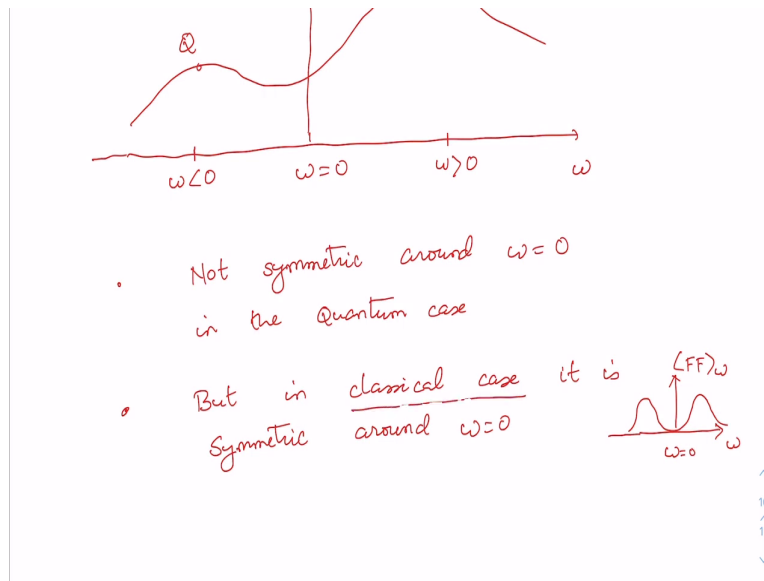 Q
ω<0 ω=0 ω>0 ω
• Not symmetric around ω=0
in the Quantum case
• But in classical case it is
Symmetric around ω=0
⟨FF⟩ω
ω=0 ω